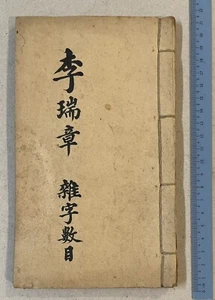 李瑞章
雜字數目